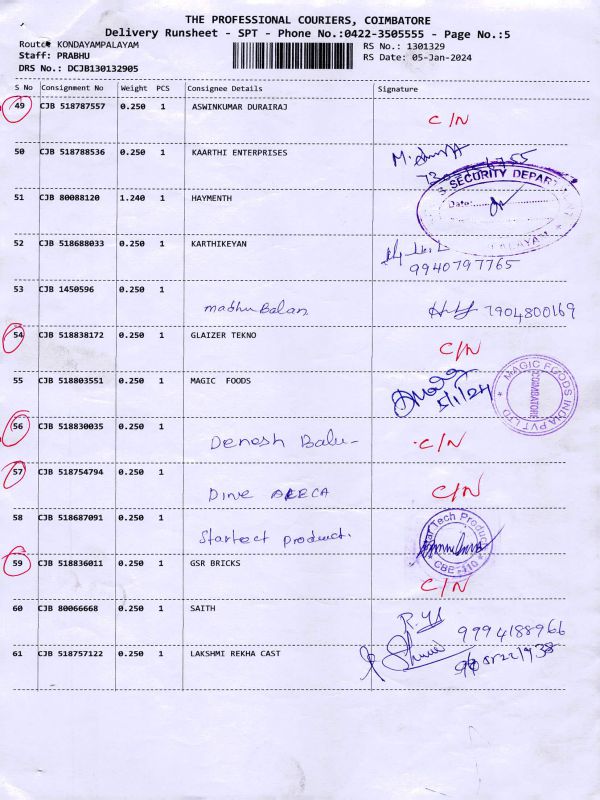 THE PROFESSIONAL COURIERS, COIMBATORE
Delivery Runsheet - SPT - Phone No.:0422-3505555 - Page No.:5
Route: KONDAYAMPALAYAM RS No.: 1301329
Staff: PRABHU RS Date: 05-Jan-2024
DRS No.: DCJB130132905
S No Consignment No Weight PCS Consignee Details Signature
49 CJB 518787557 0.250 1 ASWINKUMAR DURAIRAJ C/N
50 CJB 518788536 0.250 1 KAARTHI ENTERPRISES
SECURITY DEPAR
51 CJB 80088120 1.240 1 HAYMENTH Date:
52 CJB 518688033 0.250 1 KARTHIKEYAN
9940797765
53 CJB 1450596 0.250 1 madhu Balan 7904800169
54 CJB 518838172 0.250 1 GLAIZER TEKNO C/N
55 CJB 518803551 0.250 1 MAGIC FOODS 5/1/24
MAGIC FOODS INDIA PVT LTD
COIMBATORE
56 CJB 518830035 0.250 1 Denesh Balu- C/N
57 CJB 518754794 0.250 1 Dine ARECA C/N
58 CJB 518687091 0.250 1 Startect product.
Tech Produc
CBE
59 CJB 518836011 0.250 1 GSR BRICKS C/N
60 CJB 80066668 0.250 1 SAITH 9994188966
61 CJB 518757122 0.250 1 LAKSHMI REKHA CAST